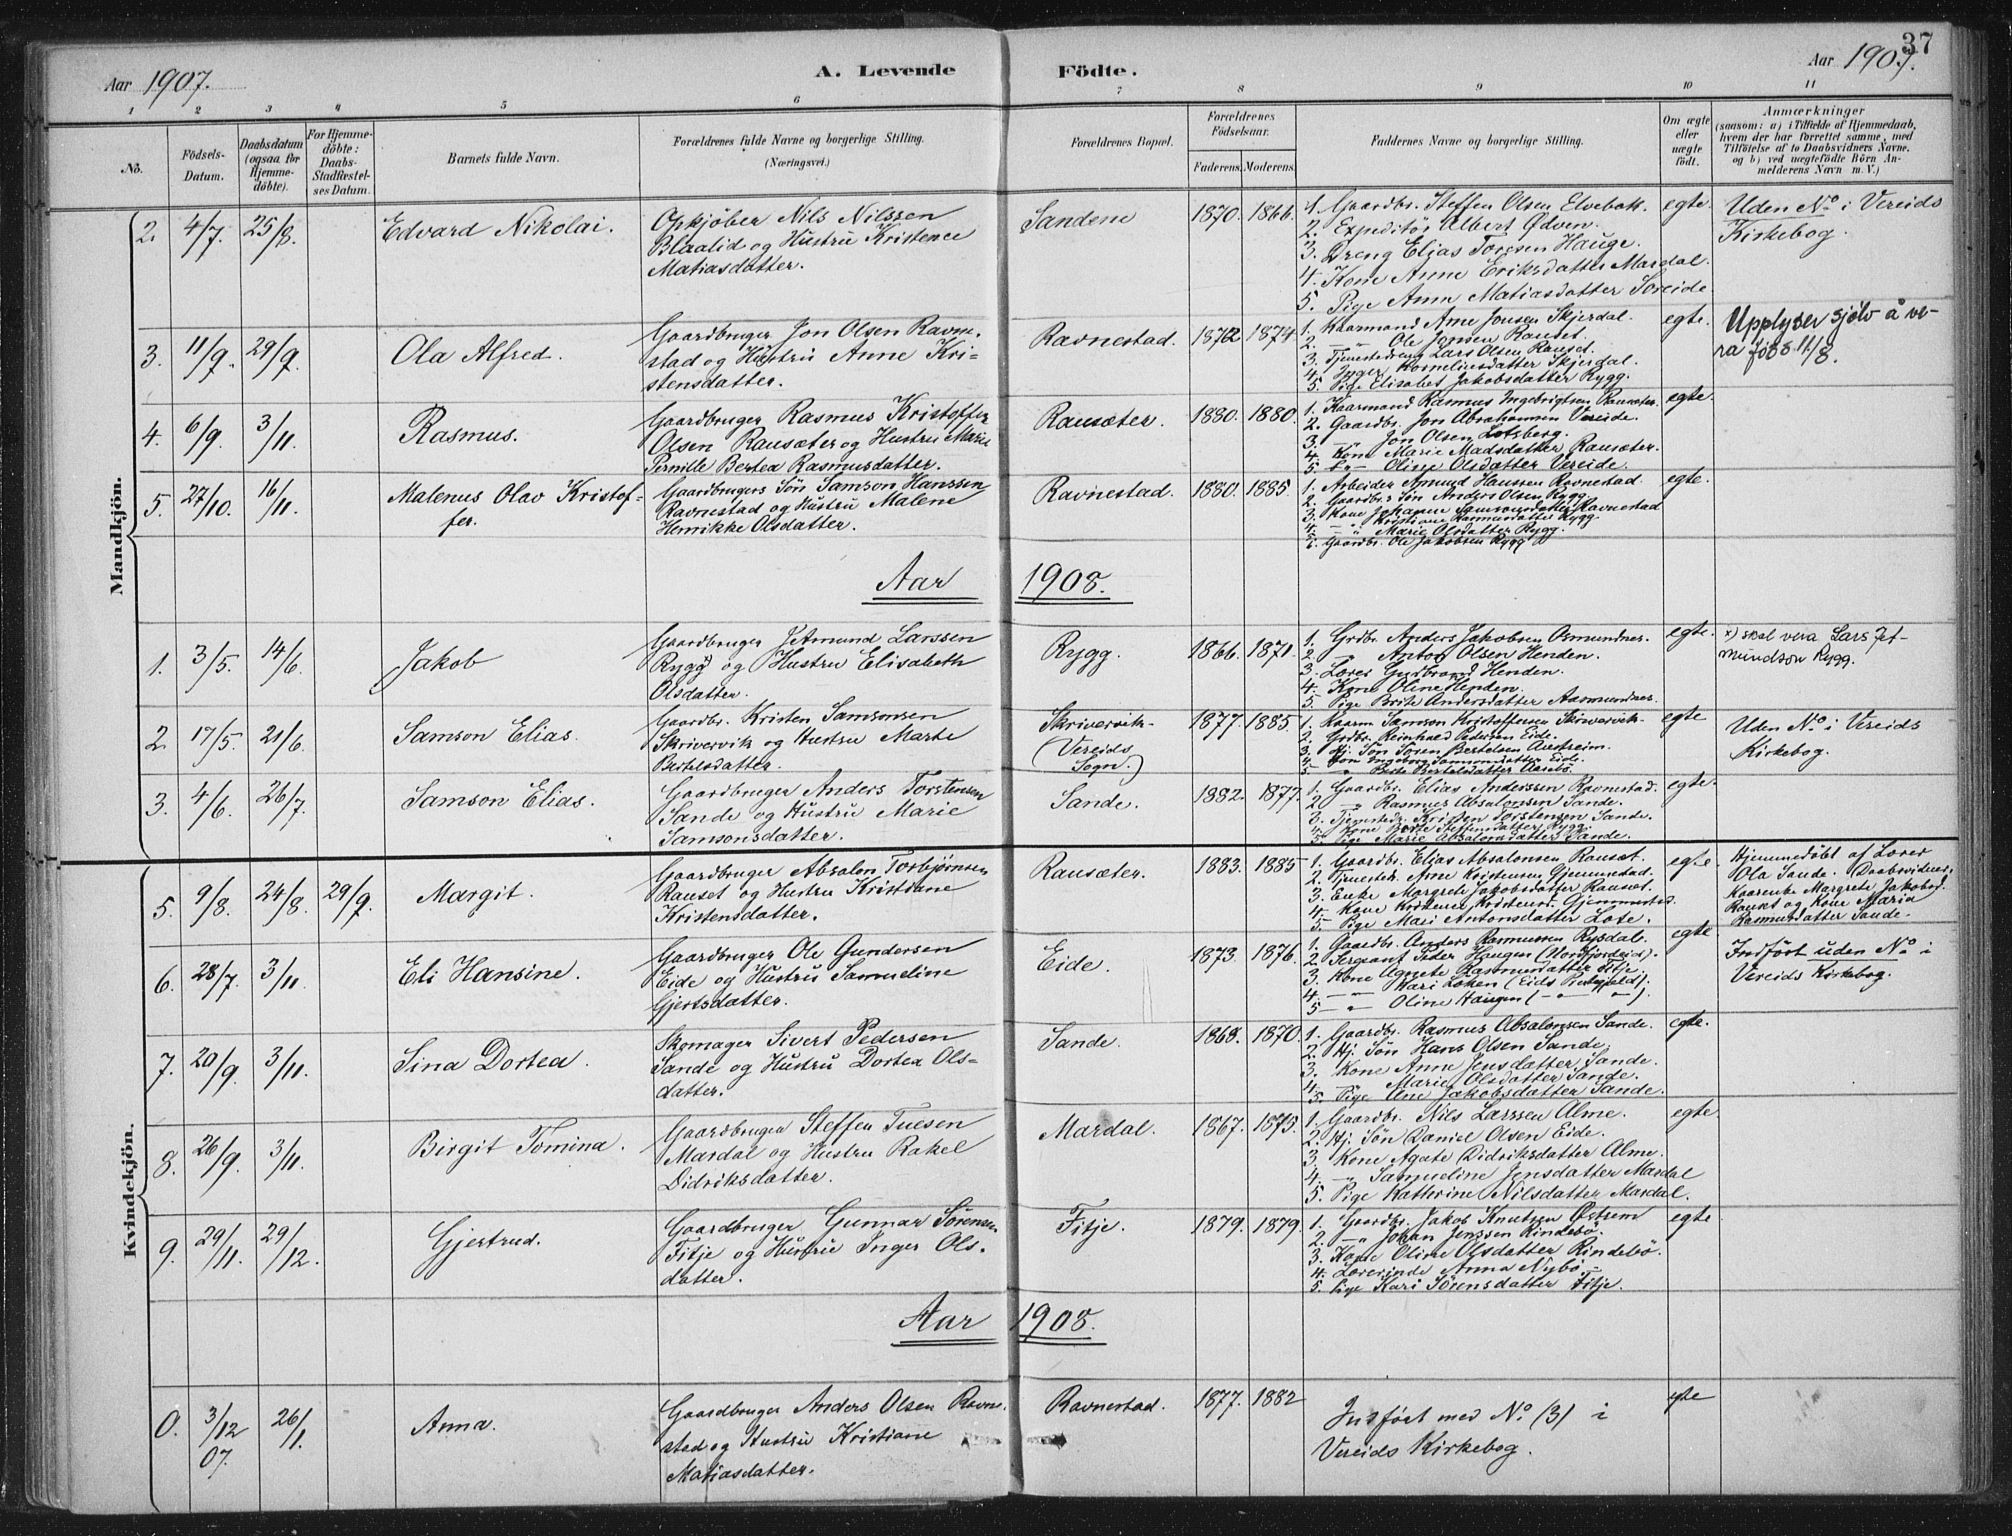 37
Aar 1907.
A. Levende Födte.
Aar 1907.
1 2 3 4 5 6 7 8 9 10 11
No.
Födsels-Datum.
Daabsdatum (ogsaa for Hjemmedöbte).
For Hjemmedöbte: Daabs-Stadfæstelses Datum.
Barnets fulde Navn.
Forældrenes fulde Navne og borgerlige Stilling.
(Næringsvei.)
Forældrenes Bopæl.
Forældrenes Födselsaar.
Faderens. Moderens.
Faddernes Navne og borgerlige Stilling.
Om ægte eller uægte födt.
Anmærkninger
(saasom: a) i Tilfælde af Hjemmedaab, hvem der har forrettet samme, med Tilföielse af to Daabsvidners Navne. og b) ved uægtefödte Börn Anmelderens Navn m. V.)
Mandkjön.
2. 4/7. 25/8. Edvard Nikolai.
Opkjøber Nils Nilssen
Blaalid og Hustru Kristence
Matiasdatter.
Sandene 1870. 1866.
1. Gaardbr. Steffen Olsen Elvebakk.
2. Expeditör Albert Ødven.
3. Dreng Elias Toresen Hauge.
4. Kone Anne Eriksdatter Mardal.
5. Pige Anna Matiasdatter Soreide.
egte.
Uden No i Vereids
Kirkebog.
3. 11/9. 29/9. Ola Alfred.
Gaardbruger Jon Olsen Ravne-
stad og Hustru Anne Kri-
stensdatter.
Ravnestad. 1872 1874
1. Kaarmand Arne Jonsen Skjerdal.
2. " Ole Jonsen Rauset.
3. Tjenestedreng Lars Olsen Rauset.
4. Inger Korneliusdatter Skjerdal.
5. Pige Elisabet Jakobsdatter Rygg.
egte.
Upplyser sjølv å ve-
ra född 11/8.
4. 6/9. 3/11. Rasmus.
Gaardbruger Rasmus Kristoffer
Olsen Rausæter og Hustru Marie
Pernille Bertea Rasmusdatter.
Rausæter. 1880. 1880.
1. Kaarmand Rasmus Ingebrigtsen Rausæter.
2. Gaardbr. Jon Abrahamsen Vereide.
3. " Jon Olsen Lotsberg.
4. Kone Marie Madsdatter Rausæter.
5. " Oline Olsdatter Vereide.
egte.
5. 27/10. 16/11. Malenus Olav Kristof-
fer.
Gaardbrugers Søn Samson Hanssen
Ravnestad og Hustru Malene
Henrikke Olsdatter.
Ravnestad. 1880. 1885.
1. Arbeider Amund Hanssen Ravnestad.
2. Gaardbr.s Søn Anders Olsen Rygg.
3. Kone Johanne Samsonsdatter Ravnestad
4. " Kristiane Rasmusdatter Rygg
" Marie Olsdatter Rygg.
6. Gaardbr. Ole Jakobsen Rygg
egte.
Aar 1908.
1. 3/5. 14/6. Jakob
Gaardbruger Jetmund Larssen
Rygg og Hustru Elisabeth
Olsdatter.
Rygg. 1866. 1871.
1. Grdbr. Anders Jakobsen Osmundnes.
2. " Anton Olsen Henden.
3. Lærer Gudbrand Henden.
4. Kone Oline Henden.
5. Pige Brite Andersdatter Aasmundnes.
egte.
x) skal vera Lars Jet-
mundson Rygg.
2. 17/5. 21/6. Samson Elias.
Gaardbr. Kristen Samsonsen
Skrivervik og Hustru Marte
Bertelsdatter.
Skrivervik.
(Vereids
Sogn.)
1877. 1885.
1. Kaarm. Samson Kristoffersen Skrivervik.
2. Grdbr. Reinhard Pedersen Eide.
3. Hj. Søn Søren Bertelsen Austreim.
4. Kone Ingeborg Samsonsdatter Eide.
5. " Brite Bertelsdatter Aarebø.
egte
Uden No i Vereids
Kirkebog.
3. 4/6. 26/7. Samson Elias.
Gaardbruger Anders Torstensen
Sande og Hustru Marie
Samsonsdatter.
Sande. 1882. 1877.
1. Gaardbr. Elias Anderssen Ravnestad.
2. " Rasmus Absalonsen Sande.
3. Tjenestedr. Kristen Torstensen Sande.
4. Kone Brite Steffensdatter Rygg.
5. Pige Marie Absalonsdatter Sande.
egte.
Kvindekjön.
5. 9/8. 24/8. 29/9. Margit.
Gaardbruger Absalon Torbjørnsen
Rauset og Hustru Kristiane
Kristensdatter.
Rausæter. 1883. 1885
1. Gaardbr. Elias Absalonsen Rauset.
2. Tjenestedr. Arne Kristensen Gjemmestad.
3. Enke Margrete Jakobsdatter Rauset.
4. Kone Kristence Kristensd. Gjemmestad.
5. Pige Mari Antonsdatter Lote.
egte.
Hjemmedøbt af Lærer
Ola Sande. Daabsvidner:
Kaarenke Margrete Jakobsd.
Rauset og Kone Maria
Rasmusdatter Sande.
6. 28/7. 3/11. Eli Hansine.
Gaardbruger Ole Gundersen
Eide og Hustru Samueline
Gjertsdatter.
Eide. 1873. 1876.
1. Gaardbr. Anders Rasmussen Rysdal.
2. Sergeant Peder Haugen (Nordfjordeid).
3. Kone Agnete Rasmusdatter Fitje.
4. " Kari Løken (Eids Prestegjeld).
5. " Oline Haugen ( " " ).
egte
Indført uden No i
Vereids Kirkebog.
7. 20/9. 3/11. Sina Dortea.
Skomager Sivert Pedersen
Sande og Hustru Dortea Ols-
datter.
Sande. 1868. 1870.
1. Gaardbr. Rasmus Absalonsen Sande.
2. Hj. Søn Hans Olsen Sande.
3. Kone Anne Jensdatter Sande.
4. " Marie Olsdatter Sande.
5. Pige Ane Jakobsdatter Sande.
egte.
8. 26/9. 3/11. Birgit Tomina.
Gaardbruger Steffen Tuesen
Mardal og Hustru Rakel
Didriksdatter.
Mardal. 1867. 1875.
1. Gaardbr. Nils Larssen Alme.
2. Hj. Søn Daniel Olsen Eide.
3. Kone Agate Didriksdatter Alme.
4. " Samueline Jensdatter Mardal
5. Pige Kathrine Nilsdatter Mardal.
egte
9. 29/11. 29/12. Gjertrud.
Gaardbruger Gunnar Sørensen
Fitje og Hustru Inger Ols-
datter.
Fitje. 1879. 1879.
1. Gaardbr. Jakob Knutsen Østrem
2. " Johan Jenssen Rindebø.
3. Kone Oline Olsdatter Rindebö.
4. Lærerinde Anna Nybö.
5. Pige Kari Sørensdatter Fitje.
egte
Aar 1908.
0. 3/12 07. 26/1. Anna.
Gaardbruger Anders Olsen Ravne-
stad og Hustru Kristiane
Matiasdatter.
Ravnestad. 1877. 1882
Indført med No (3) i
Vereids Kirkebog.
egte